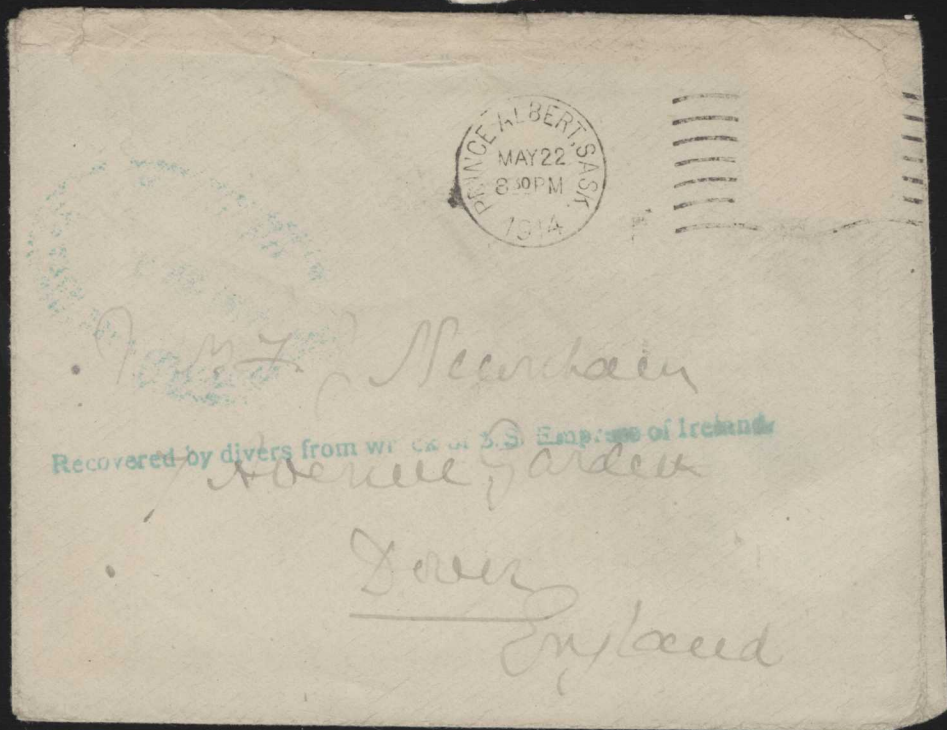 PRINCE ALBERT, SASK.
MAY 22
8 30 PM
1914
Needham
Recovered by divers from wreck of S.S. Empress of Ireland.
Avenue Gardens
Dover
England